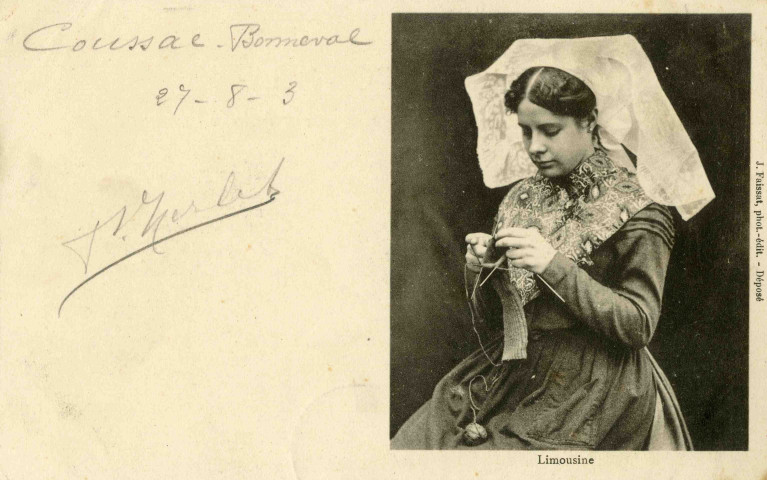 Coussac-Bonneval
27-8-3
J. Faissat, phot.-édit. - Déposé
Limousine